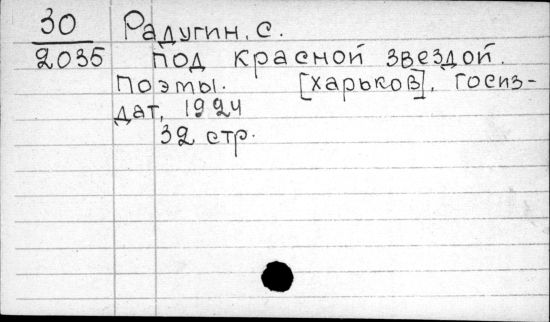 30 Радугин, С.
2035 под красной звездой.
Поэты. [Харьков], Госиз-
дат, 1924
32 стр.